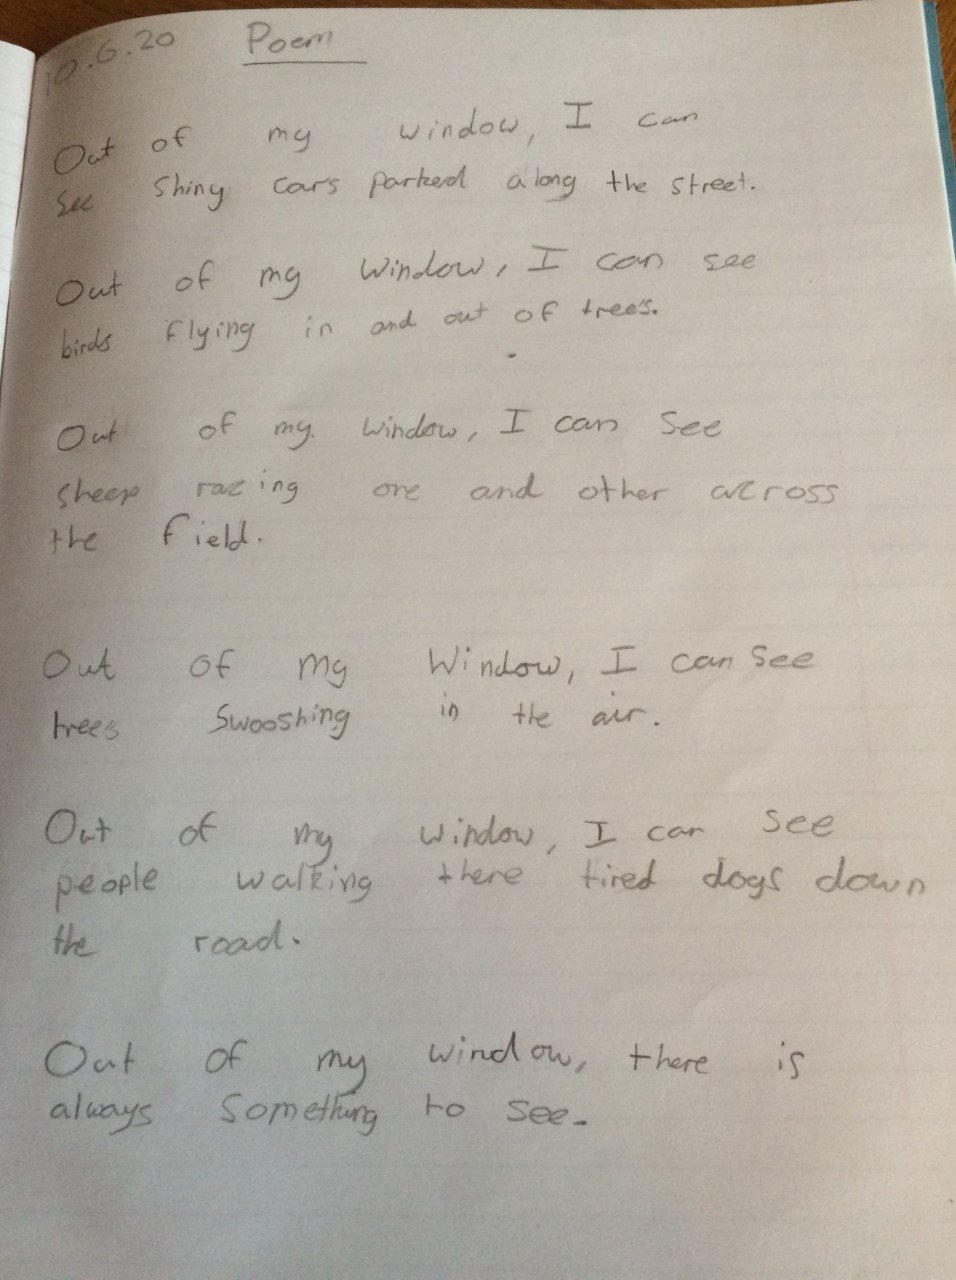 10.6.20 Poem
Out of my window, I can
see shiny cars parked along the street.
Out of my window, I can see
birds flying in and out of trees.
Out of my window, I can see
sheep racing one and other across
the field.
Out of my window, I can see
trees swooshing in the air.
Out of my window, I can see
people walking there tired dogs down
the road.
Out of my window, there is
always something to see.